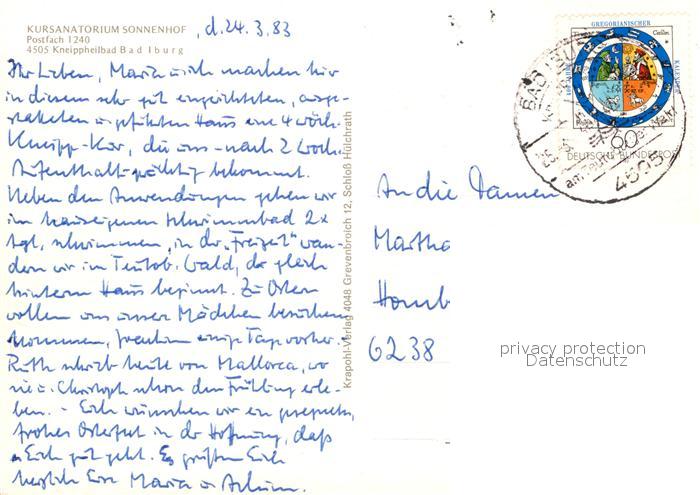 KURSANATORIUM SONNENHOF , d. 24.3.83
Postfach 1240
4505 Kneippheilbad Bad Iburg
Ihr Lieben, Maria u. ich machen hier
in diesem sehr gut eingerichteten, ausge-
statteten u. geführten Haus eine 4 wöch.
Kneipp-Kur, die uns - nach 2 Woch.
Aufenthalt - prächtig bekommt.
Neben den Anwendungen gehen wir
im hauseigenen Schwimmbad 2x
tgl. schwimmen, in der "Freizeit" wan-
dern wir im Teutob. Wald, der gleich
hinterm Haus beginnt. Zu Ostern
wollen uns unser Mädchen besuchen
kommen, Joachim einige Tage vorher.
Ruth schrieb heute von Mallorca, wo
sie u. Christoph schon den Frühling erle-
ben. - Euch wünschen wir ein gesegnetes,
frohes Osterfest in der Hoffnung, daß
es Euch gut geht. Es grüßen Euch
herzlich Eure Maria u.
Krapohl-Verlag 4048 Grevenbroich 12, Schloß Hülchrath
GREGORIANISCHER
KALENDER
60
DEUTSCHE BUNDESPOST
BAD IBURG
am Teutoburger Wald
4505
An die Damen
Martha
Homb
6238
privacy protection
Datenschutz